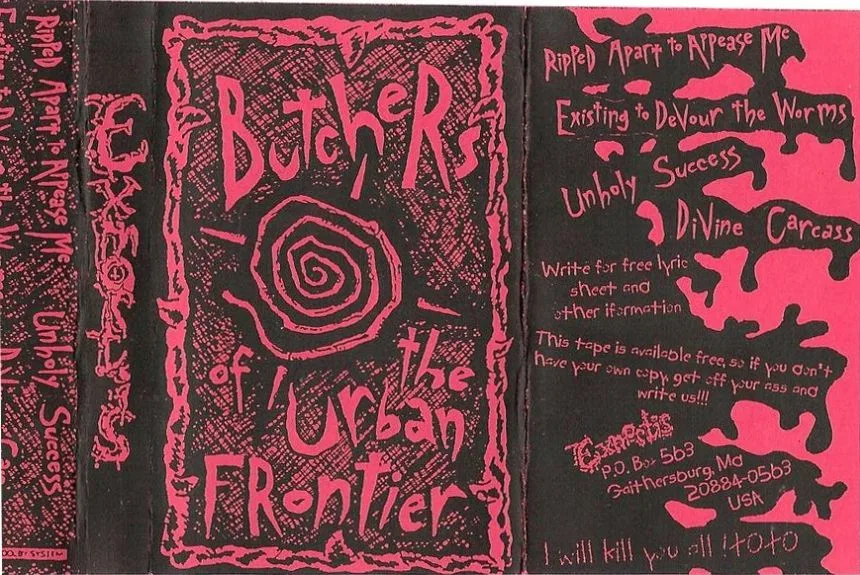 Ripped Apart to Appease Me Unholy Success
Existing to Devour the Worms
DOLBY SYSTEM
Exmortis
Butchers
of the
Urban
Frontier
Ripped Apart to Appease Me
Existing to Devour the Worms
Unholy Success
Divine Carcass
Write for free lyric
sheet and
other iformation
This tape is available free, so if you don't
have your own copy, get off your ass and
write us!!!
Exmortis
P.O. Box 563
Gaithersburg, Md
20884-0563
USA
I will kill you all !XOXO